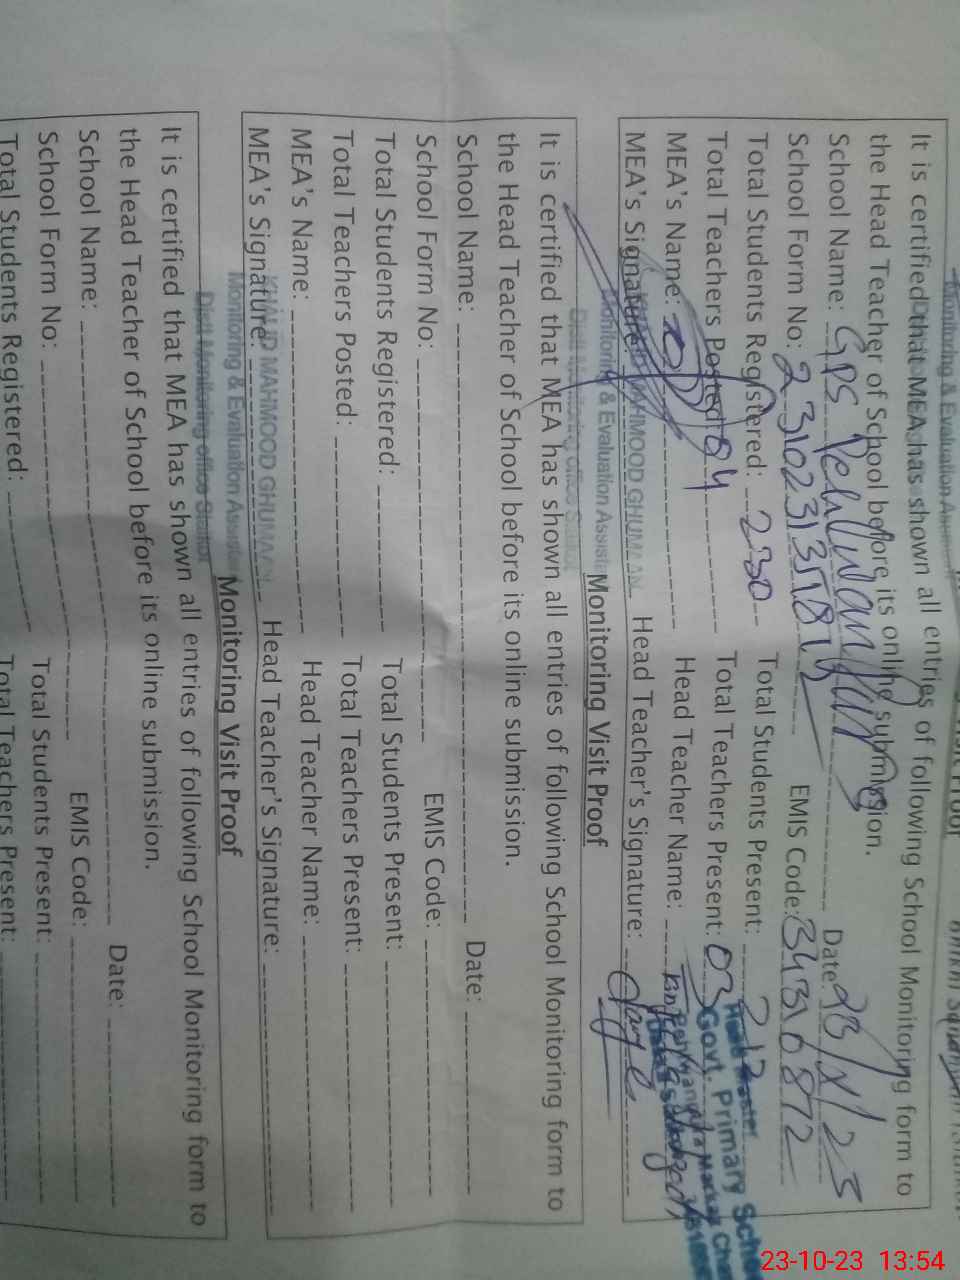 Monitoring & Evaluation
It is certified that MEA has shown all entries of following School Monitoring form to
the Head Teacher of School before its online submission.
School Name: GPS Date: 23/X/23
School Form No: EMIS Code: 34310872
Total Students Registered: 230 Total Students Present: 212
Total Teachers Posted: 04 Total Teachers Present: 03
MEA's Name: Head Teacher Name:
MEA's Signature: Head Teacher's Signature:
KHALID MAHMOOD GHUMMAN
Monitoring & Evaluation Assistant
Distt Monitoring office Sialkot
Head Master
Govt. Primary
Monitoring Visit Proof
It is certified that MEA has shown all entries of following School Monitoring form to
the Head Teacher of School before its online submission.
School Name: Date:
School Form No: EMIS Code:
Total Students Registered: Total Students Present:
Total Teachers Posted: Total Teachers Present:
MEA's Name: Head Teacher Name:
MEA's Signature: Head Teacher's Signature:
KHALID MAHMOOD GHUMMAN
Monitoring & Evaluation Assistant
Distt Monitoring office Sialkot
Monitoring Visit Proof
It is certified that MEA has shown all entries of following School Monitoring form to
the Head Teacher of School before its online submission.
School Name: Date:
School Form No: EMIS Code:
Total Students Registered: Total Students Present:
Total Teachers Present:
23-10-23 13:54